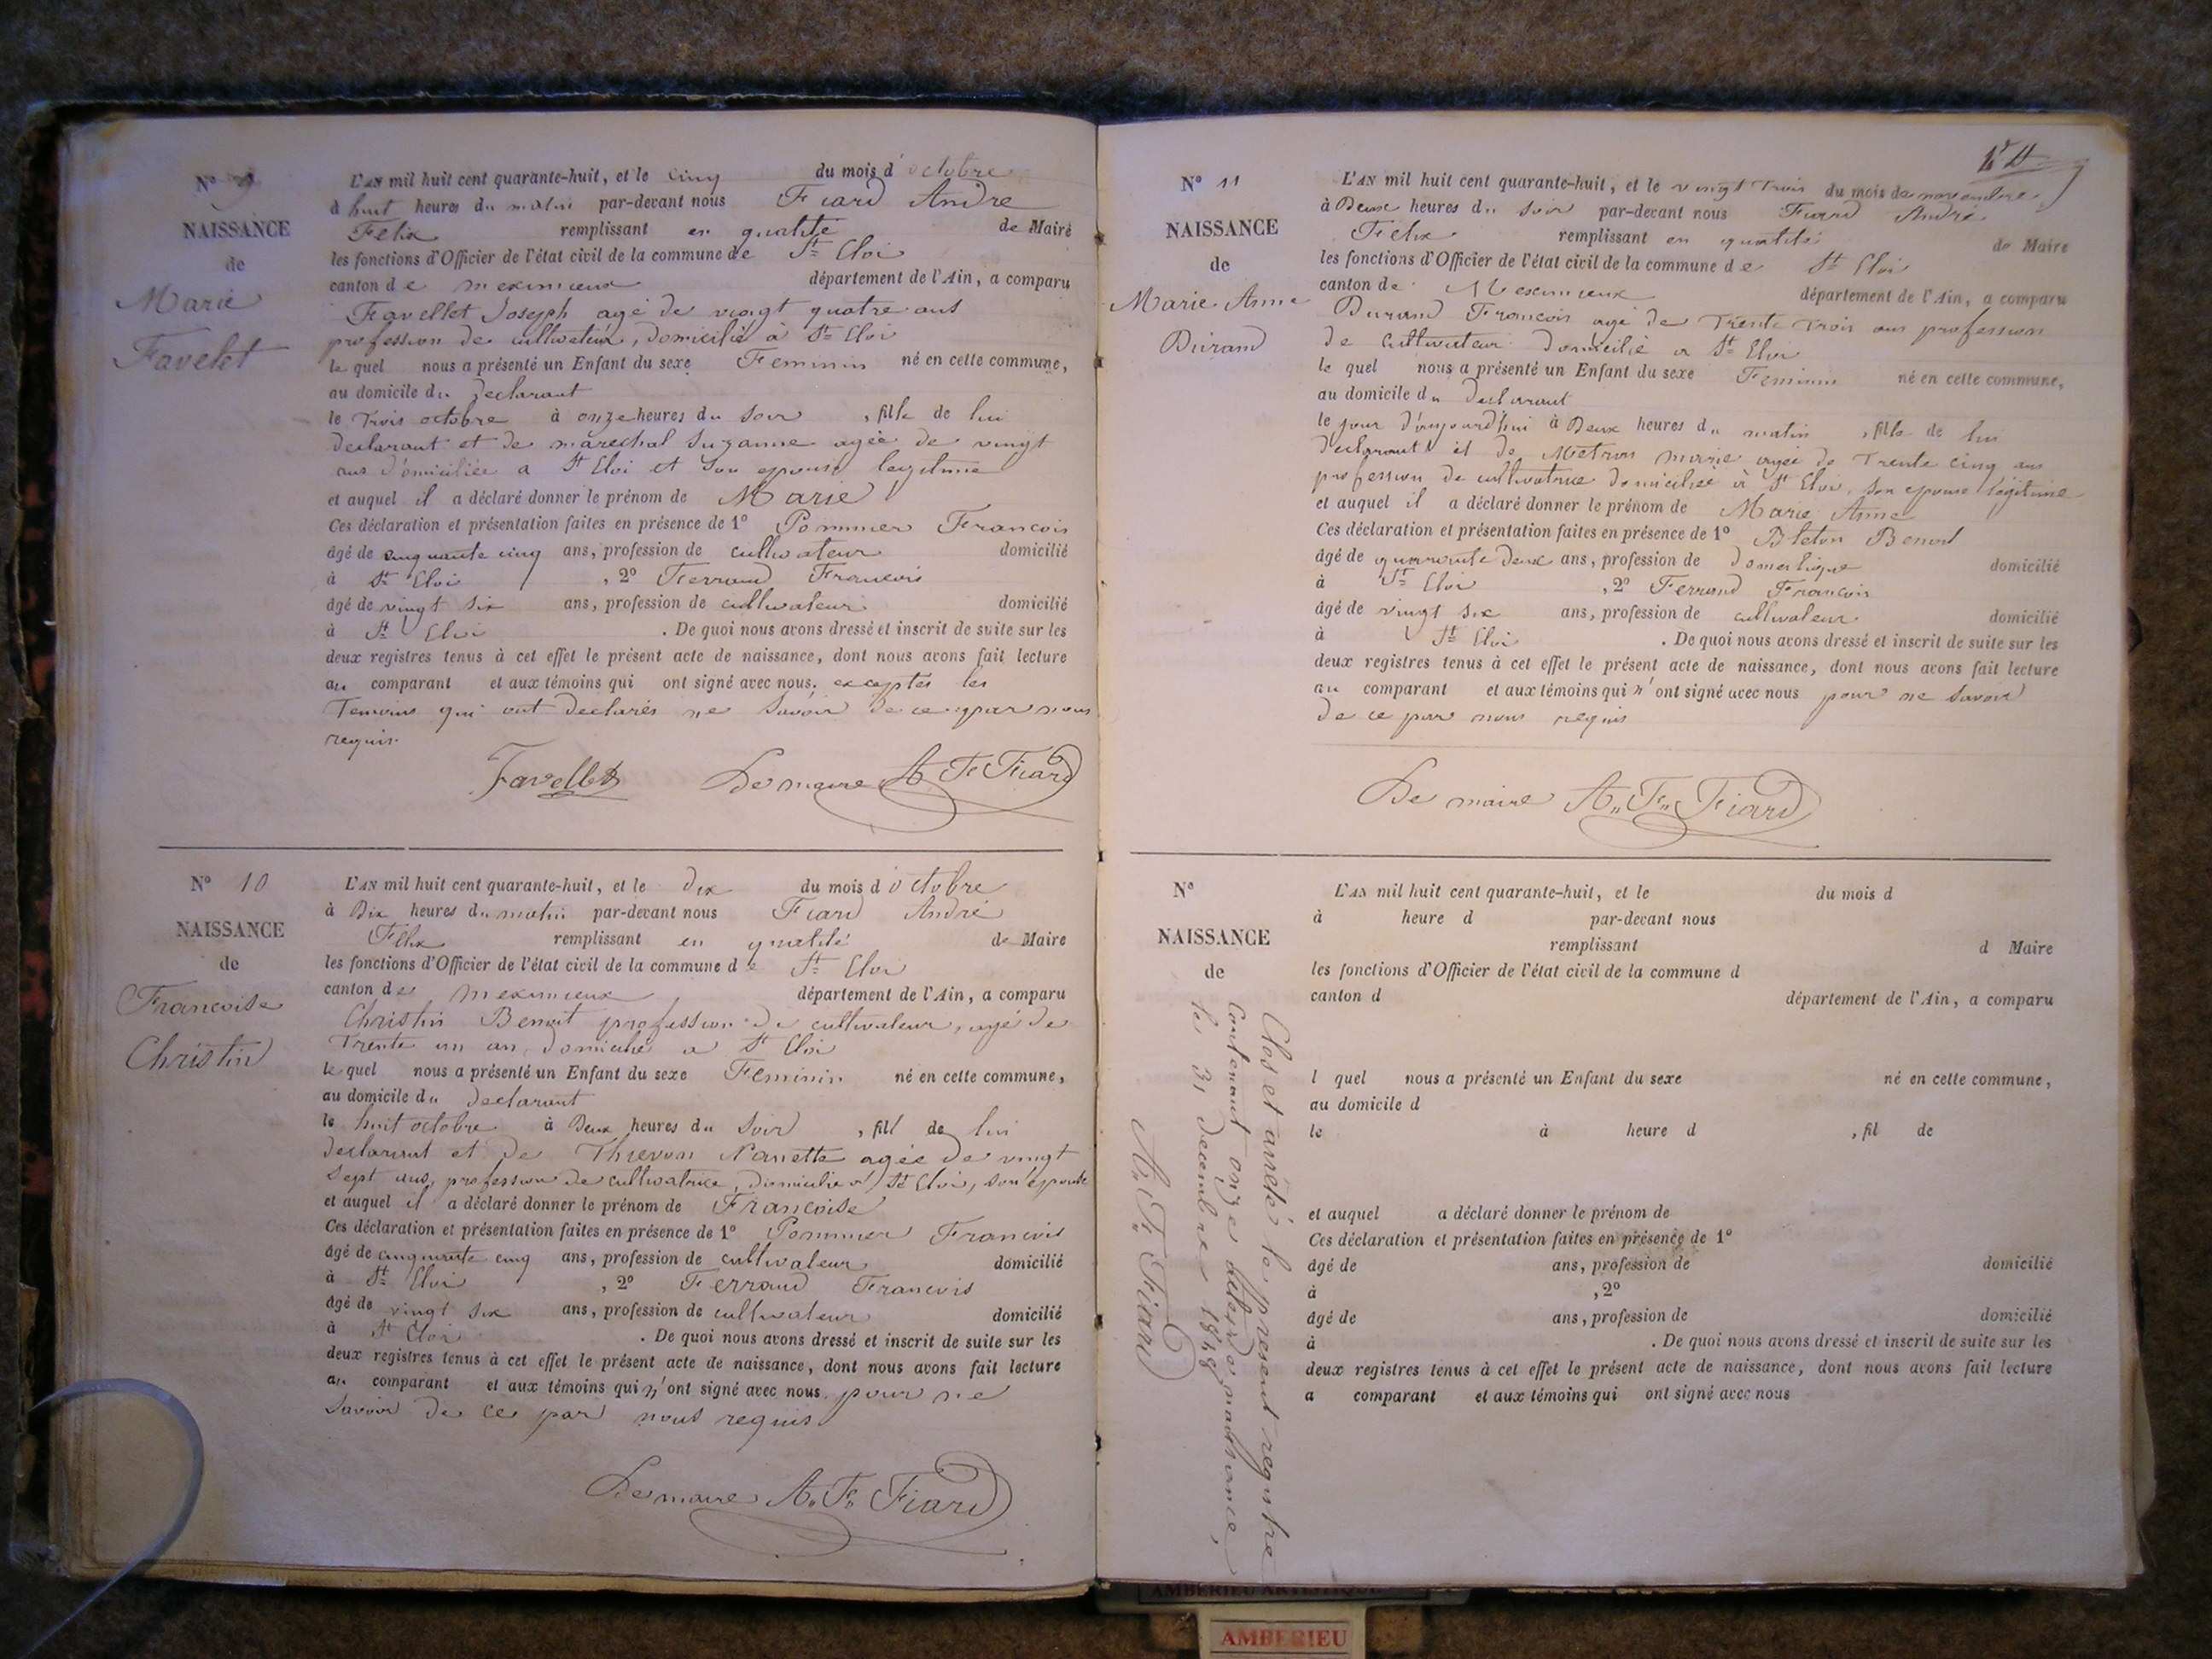 N° 9
NAISSANCE
de
Marie
Favelet
L'AN mil huit cent quarante-huit, et le cinq du mois d'octobre
à huit heures du matin par-devant nous Fiard André
Felix remplissant en qualité de Maire
les fonctions d'Officier de l'état civil de la commune de St Eloi
canton de meximieux département de l'Ain, a comparu
Favellet Joseph agé de vingt quatre ans
profession de cultivateur, domicilié à St Eloi
lequel nous a présenté un Enfant du sexe Feminin né en cette commune,
au domicile du declarant
le trois octobre à onze heures du soir, fille de lui
declarant et de marechal Suzanne agée de vingt
ans domiciliée a St Eloi et son epouse legitime
et auquel il a déclaré donner le prénom de Marie
Ces déclaration et présentation faites en présence de 1° Pommier Francois
âgé de cinquante cinq ans, profession de cultivateur domicilié
à St Eloi, 2° Ferrand Francois
âgé de vingt six ans, profession de cultivateur domicilié
à St Eloi. De quoi nous avons dressé et inscrit de suite sur les
deux registres tenus à cet effet le présent acte de naissance, dont nous avons fait lecture
au comparant et aux témoins qui ont signé avec nous, exceptés les
Temoins qui ont declarés ne savoir de ce par nous
requis.
Favellet Le maire A F Fiard
N° 10
NAISSANCE
de
Francoise
Christin
L'AN mil huit cent quarante-huit, et le dix du mois d'octobre
à Dix heures du matin par-devant nous Fiard André
Felix remplissant en qualité de Maire
les fonctions d'Officier de l'état civil de la commune de St Eloi
canton de meximieux département de l'Ain, a comparu
Christin Benoit profession de cultivateur, agé de
Trente un an, domicilié a St Eloi
lequel nous a présenté un Enfant du sexe Feminin né en cette commune,
au domicile du declarant
le huit octobre à Deux heures du soir, fill de lui
declarant et de Thievon Nanette agée de vingt
sept ans, profession de cultivatrice, domiciliée a St Eloi, son épouse
et auquel il a déclaré donner le prénom de Francoise
Ces déclaration et présentation faites en présence de 1° Pommier Francois
âgé de cinquante cinq ans, profession de cultivateur domicilié
à St Eloi, 2° Ferrand Francois
âgé de vingt six ans, profession de cultivateur domicilié
à St Eloi. De quoi nous avons dressé et inscrit de suite sur les
deux registres tenus à cet effet le présent acte de naissance, dont nous avons fait lecture
au comparant et aux témoins qui n'ont signé avec nous, pour ne
savoir de ce par nous requis
Le maire A. F. Fiard
N° 11
NAISSANCE
de
Marie Anne
Durand
L'AN mil huit cent quarante-huit, et le vingt Trois du mois de novembre
à Deux heures du soir par-devant nous Fiard André
Felix remplissant en qualité de Maire
les fonctions d'Officier de l'état civil de la commune de St Eloi
canton de Meximieux département de l'Ain, a comparu
Durand Francois agé de Trente Trois ans profession
de cultivateur domicilié a St Eloi
lequel nous a présenté un Enfant du sexe Feminin né en cette commune,
au domicile du declarant
le jour d'aujourd'hui à Deux heures du matin, fille de lui
declarant et de Metron marie agée de Trente cinq ans
profession de cultivatrice domiciliée à St Eloi, son epouse légitime
et auquel il a déclaré donner le prénom de Marie Anne
Ces déclaration et présentation faites en présence de 1° Bleton Benoit
âgé de quarante Deux ans, profession de domestique domicilié
à St Eloi, 2° Ferrand Francois
âgé de vingt six ans, profession de cultivateur domicilié
à St Eloi. De quoi nous avons dressé et inscrit de suite sur les
deux registres tenus à cet effet le présent acte de naissance, dont nous avons fait lecture
au comparant et aux témoins qui n'ont signé avec nous pour ne savoir
de ce par nous requis
Le maire A. F. Fiard
N°
NAISSANCE
de
Clos et arrêté le présent registre
contenant onze actes de naissance,
le 31 decembre 1848
A. F. Fiard
L'AN mil huit cent quarante-huit, et le du mois d
à heure d par-devant nous
remplissant d Maire
les fonctions d'Officier de l'état civil de la commune d
canton d département de l'Ain, a comparu
l quel nous a présenté un Enfant du sexe né en cette commune,
au domicile d
le à heure d , fil de
et auquel a déclaré donner le prénom de
Ces déclaration et présentation faites en présence de 1°
âgé de ans, profession de domicilié
à , 2°
âgé de ans, profession de domicilié
à . De quoi nous avons dressé et inscrit de suite sur les
deux registres tenus à cet effet le présent acte de naissance, dont nous avons fait lecture
a comparant et aux témoins qui ont signé avec nous
AMBERIEU ARTISTIQUE
AMBERIEU